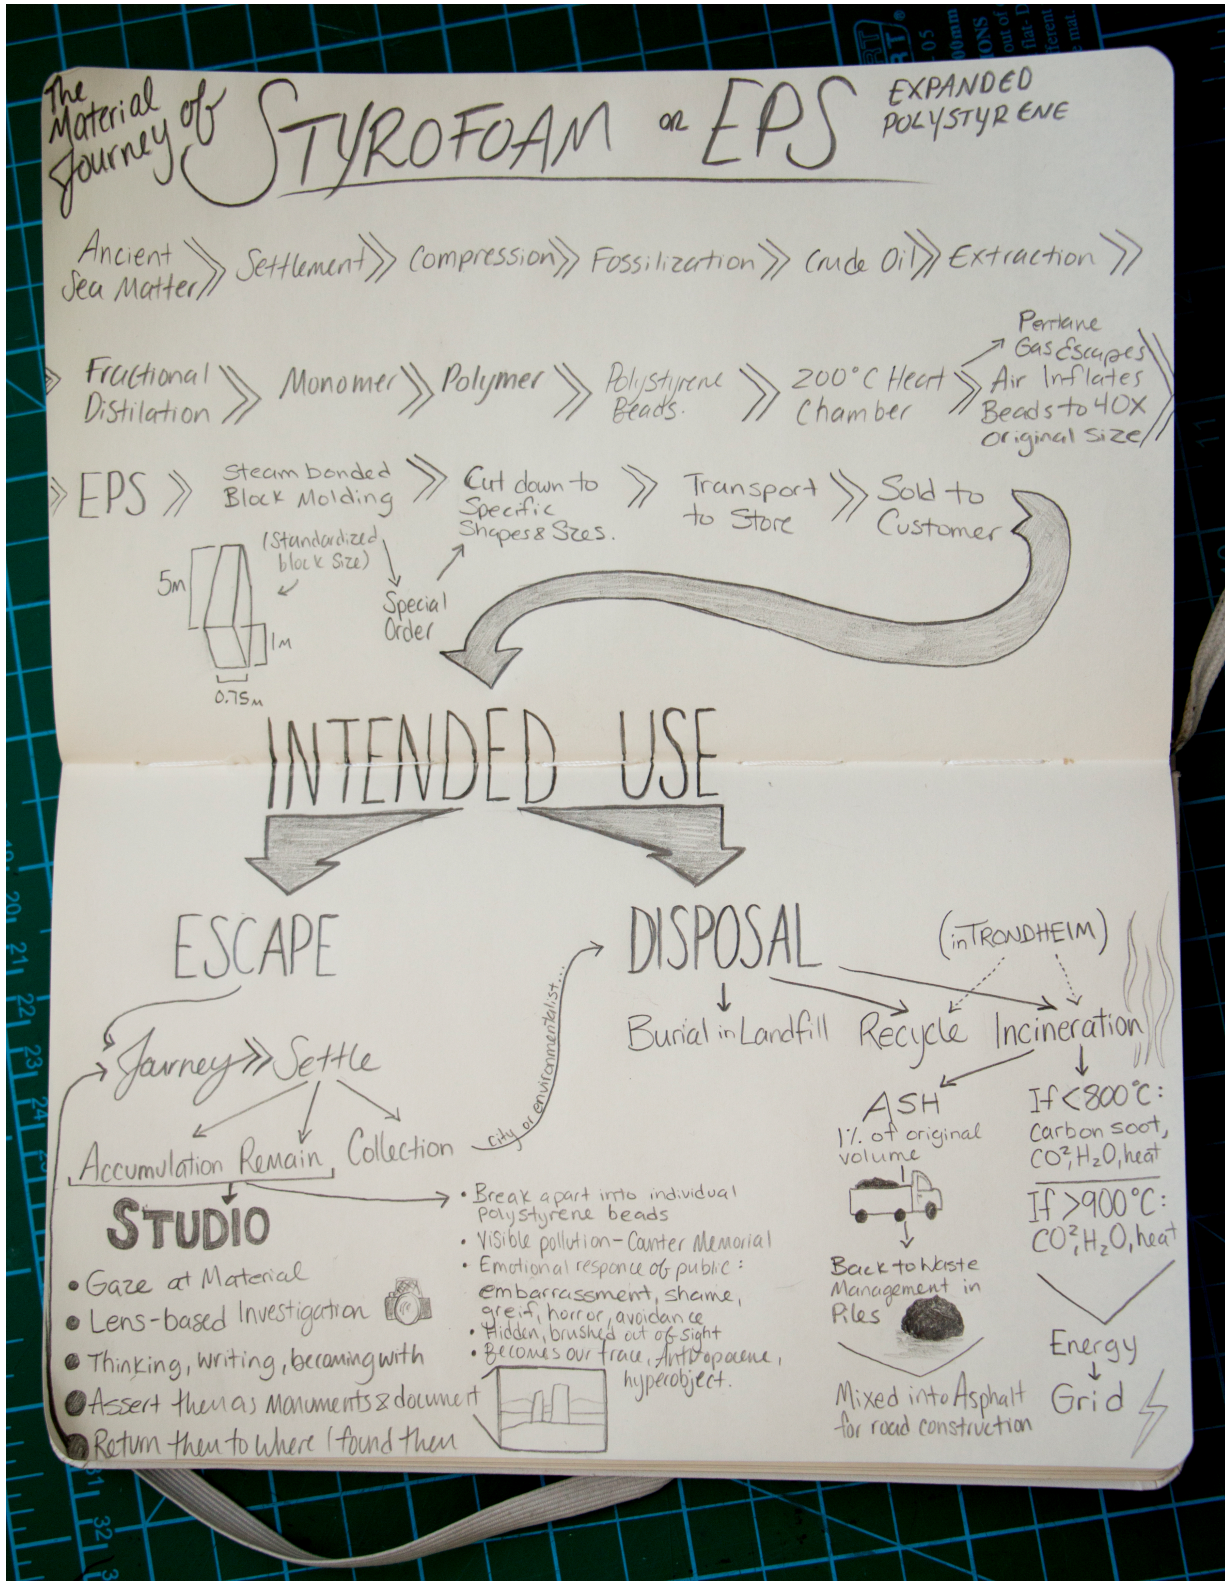 The
Material
Journey of
STYROFOAM or EPS
EXPANDED
POLYSTYRENE
Ancient
Sea Matter
Settlement
Compression
Fossilization
Crude Oil
Extraction
Fractional
Distilation
Monomer
Polymer
Polystyrene
Beads.
200°C Heat
Chamber
Pentane
Gas Escapes
Air Inflates
Beads to 40X
original size
EPS
Steam bonded
Block Molding
(Standardized
block size)
5M
1M
0.75M
Special
Order
Cut down to
Specific
Shapes & Sizes.
Transport
to Store
Sold to
Customer
INTENDED USE
ESCAPE
Journey
Settle
Accumulation
Remain
Collection
city or environmentalist...
STUDIO
• Gaze at Material
• Lens-based Investigation
• Thinking, writing, becoming with
• Assert them as Monuments & document
• Return them to where I found them
• Break apart into individual
polystyrene beads
• Visible pollution - Counter Memorial
• Emotional responce of public:
embarrassment, shame,
greif, horror, avoidance
• Hidden, brushed out of sight
• Becomes our trace, Anthropocene,
hyperobject.
DISPOSAL
(in TRONDHEIM)
Burial in Landfill
Recycle
Incineration
ASH
1% of original
volume
Back to Waste
Management in
Piles
Mixed into Asphalt
for road construction
If <800°C:
Carbon soot,
CO², H₂O, heat
If >900°C:
CO², H₂O, heat
Energy
Grid
20
21
22
23
24
31
32
11